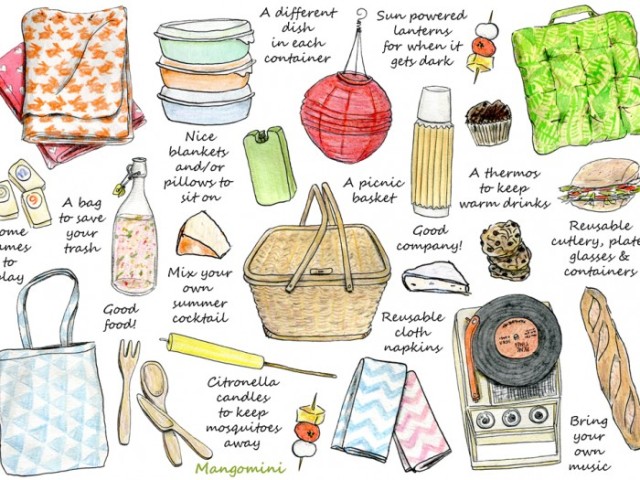 A different
dish
in each
container
Sun powered
lanterns
for when it
gets dark
Nice
blankets
and/or
pillows to
sit on
A picnic
basket
A thermos
to keep
warm drinks
A bag
to save
your
trash
to
Good
company!
Reusable
cutlery,
glasses &
containers
Mix your
own
summer
cocktail
Good
food!
Reusable
cloth
napkins
Citronella
candles
to keep
mosquitoes
away
Bring
your
own
music
Mangomini
9